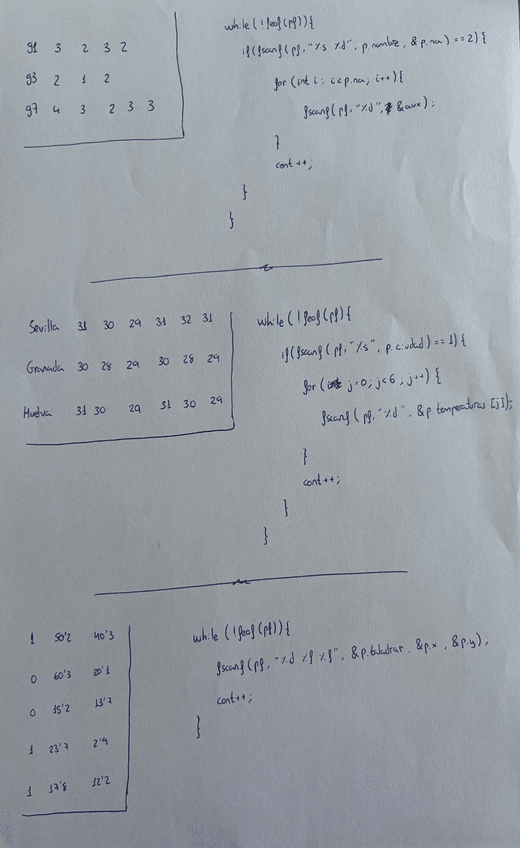 g1 3 2 3 2
g3 2 1 2
g7 4 3 2 3 3
while(!feof(pf)){
if(fscanf(pf,"%s %d", p.nombre, &p.na)==2){
for(int i; i<p.na; i++){
fscanf(pf,"%d", &aux);
}
cont++;
}
}
Sevilla 31 30 29 31 32 31
Granada 30 28 29 30 28 29
Huelva 31 30 29 31 30 29
while(!feof(pf){
if(fscanf(pf,"%s", p.ciudad)==1){
for( j=0; j<6; j++) {
fscanf(pf,"%d", &p.temperaturas[j]);
}
cont++;
}
}
1 50'2 40'3
0 60'3 20'1
0 15'2 13'7
1 23'7 2'9
1 17'8 12'2
while(!feof(pf)){
fscanf(pf,"%d %f %f", &p.taladrar, &p.x, &p.y);
cont++;
}